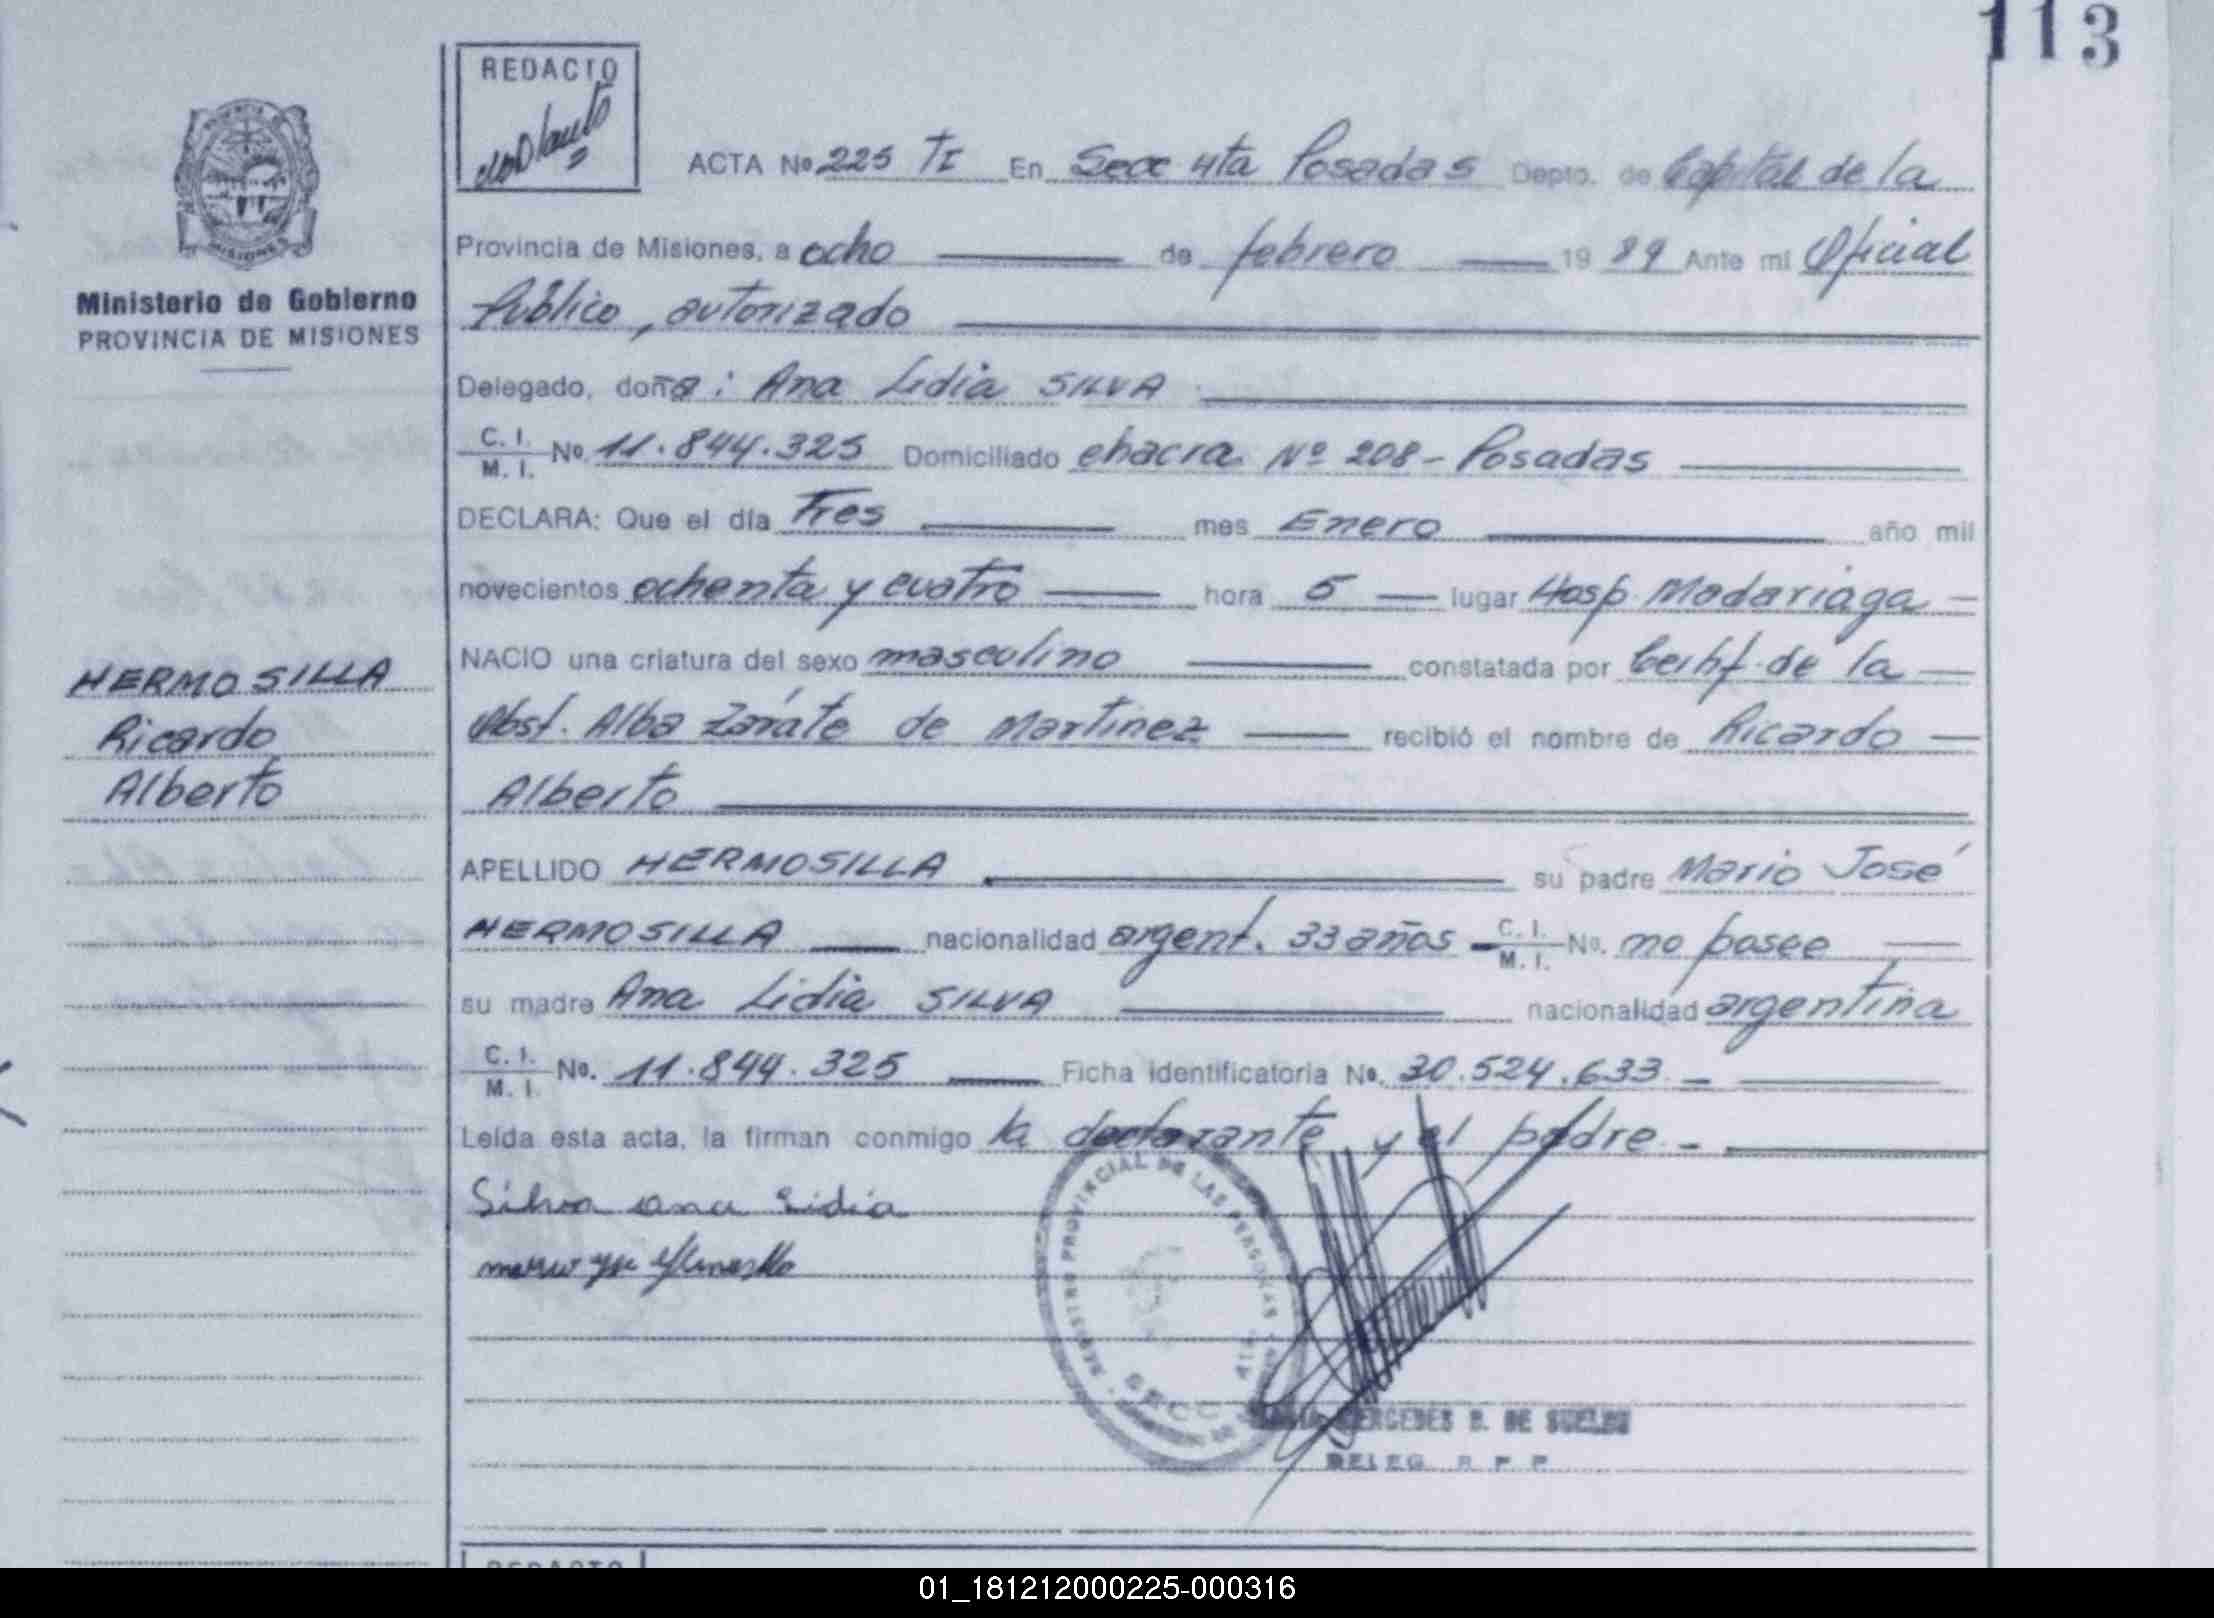 113
REDACTO
ACTA Nº 225 TI En Secc 4ta Posadas Depto. de Capital de la
Provincia de Misiones, a ocho de febrero 19 89 Ante mi Oficial
Público, autorizado
MISIONES
Ministerio de Gobierno
PROVINCIA DE MISIONES
Delegado, doña: Ana Lidia SILVA
C. I. M. I. Nº 11.844.325 Domiciliado chacra Nº 208 - Posadas
DECLARA: Que el día Tres mes Enero año mil
novecientos ochenta y cuatro hora 5 lugar Hosp. Madariaga
NACIO una criatura del sexo masculino constatada por Certif. de la
Obst. Alba Zárate de Martinez recibió el nombre de Ricardo
Alberto
HERMOSILLA
Ricardo
Alberto
APELLIDO HERMOSILLA su padre Mario José
HERMOSILLA nacionalidad argent. 33 años - C. I. M. I. No. no posee
su madre Ana Lidia SILVA nacionalidad argentina
C. I. M. I. No. 11.844.325 Ficha Identificatoria No. 30.524.633. -
Leída esta acta, la firman conmigo la declarante y el padre. -
Silva ana Lidia
REGISTRO PROVINCIAL DE LAS PERSONAS
MERCEDES B. DE SUELDO
DELEG. R. P. P.
REDACTO
01_181212000225-000316